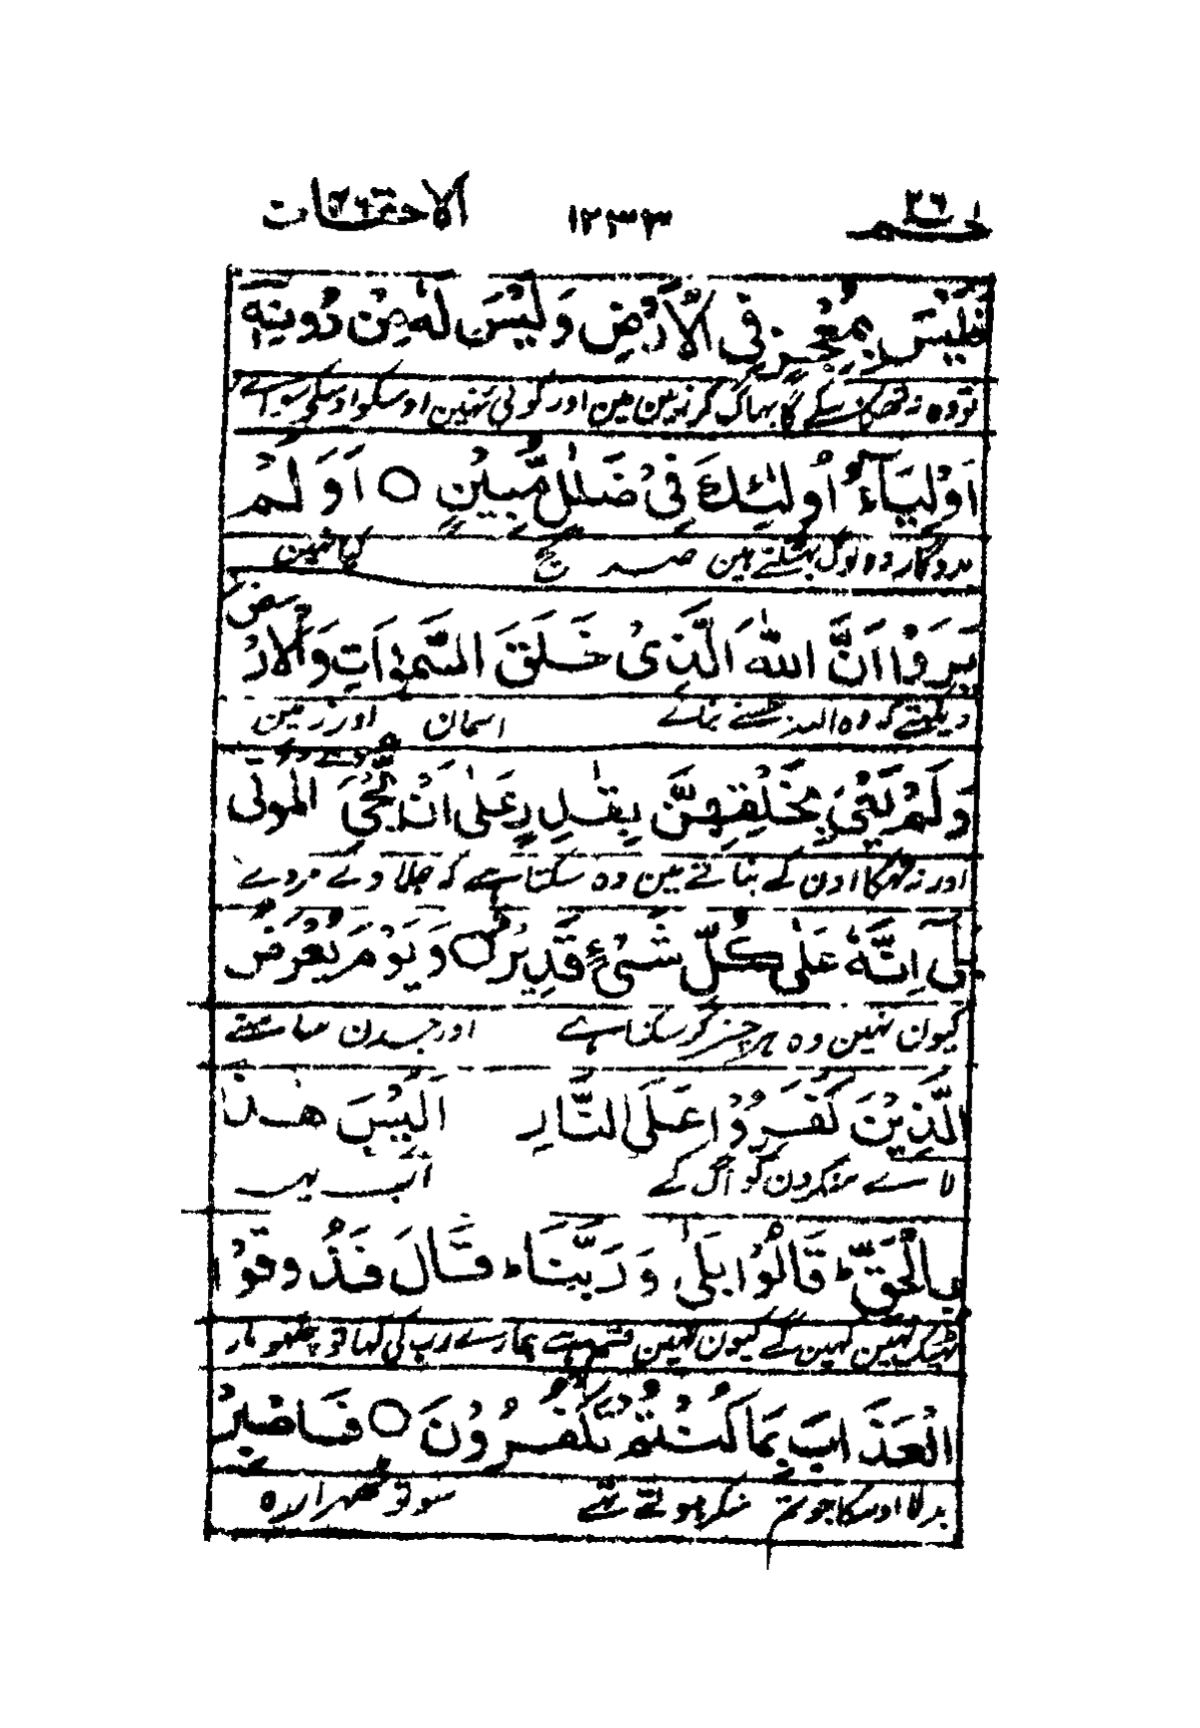 حٰم ٢٦ ١٢٣٣ الاحقاف ٤٦
فَلَيْسَ بِمُعْجِزٍ فِي الْاَرْضِ وَلَيْسَ لَهٗ مِنْ دُوْنِهٖٓ
تو وہ نہ تھکا سکے گا بھاگ کر زمین مین اور کوئی نہین اوسکو اوسکے سوائے
اَوْلِيَآءُ اُولٰٓئِكَ فِيْ ضَلٰلٍ مُّبِيْنٍ ○ اَوَلَمْ
مددگار وہ لوگ بھٹکتے ہین صریح کیا نہین
يَرَوْا اَنَّ اللّٰهَ الَّذِيْ خَلَقَ السَّمٰوٰاتِ وَالْاَرْضَ
دیکھتے کہ وہ اللہ جسنے بنائے اسمان اور زمین
وَلَمْ يَعْيَ بِخَلْقِهِنَّ بِقٰدِرٍ عَلٰى اَنْ يُّحْيِيَ الْمَوْتٰى
اور نہ تھکا اون کے بنانے مین وہ سکتا ہے کہ جلا دے مردے
بَلٰٓى اِنَّهٗ عَلٰى كُلِّ شَيْءٍ قَدِيْرٌ ○ وَيَوْمَ يُعْرَضُ
کیون نہین وہ ہر چیز کر سکتا ہے اور جسدن سامھنے
الَّذِيْنَ كَفَرُوْا عَلَى النَّارِ اَلَيْسَ هٰذَا
لائے منکرون کو آگ کے اب یہ
بِالْحَقِّ ط قَالُوْا بَلٰى وَرَبِّنَا ط قَالَ فَذُوْقُوْا
ٹھیک نہین کہین گے کیون نہین قسم ہے ہمارے رب کی کہا تو چکھو مار
الْعَذَابَ بِمَا كُنْتُمْ تَكْفُرُوْنَ ○ فَاصْبِرْ
بدلا اوسکا جو تم منکر ہوتے تھے سو تو ٹھہرا رہ